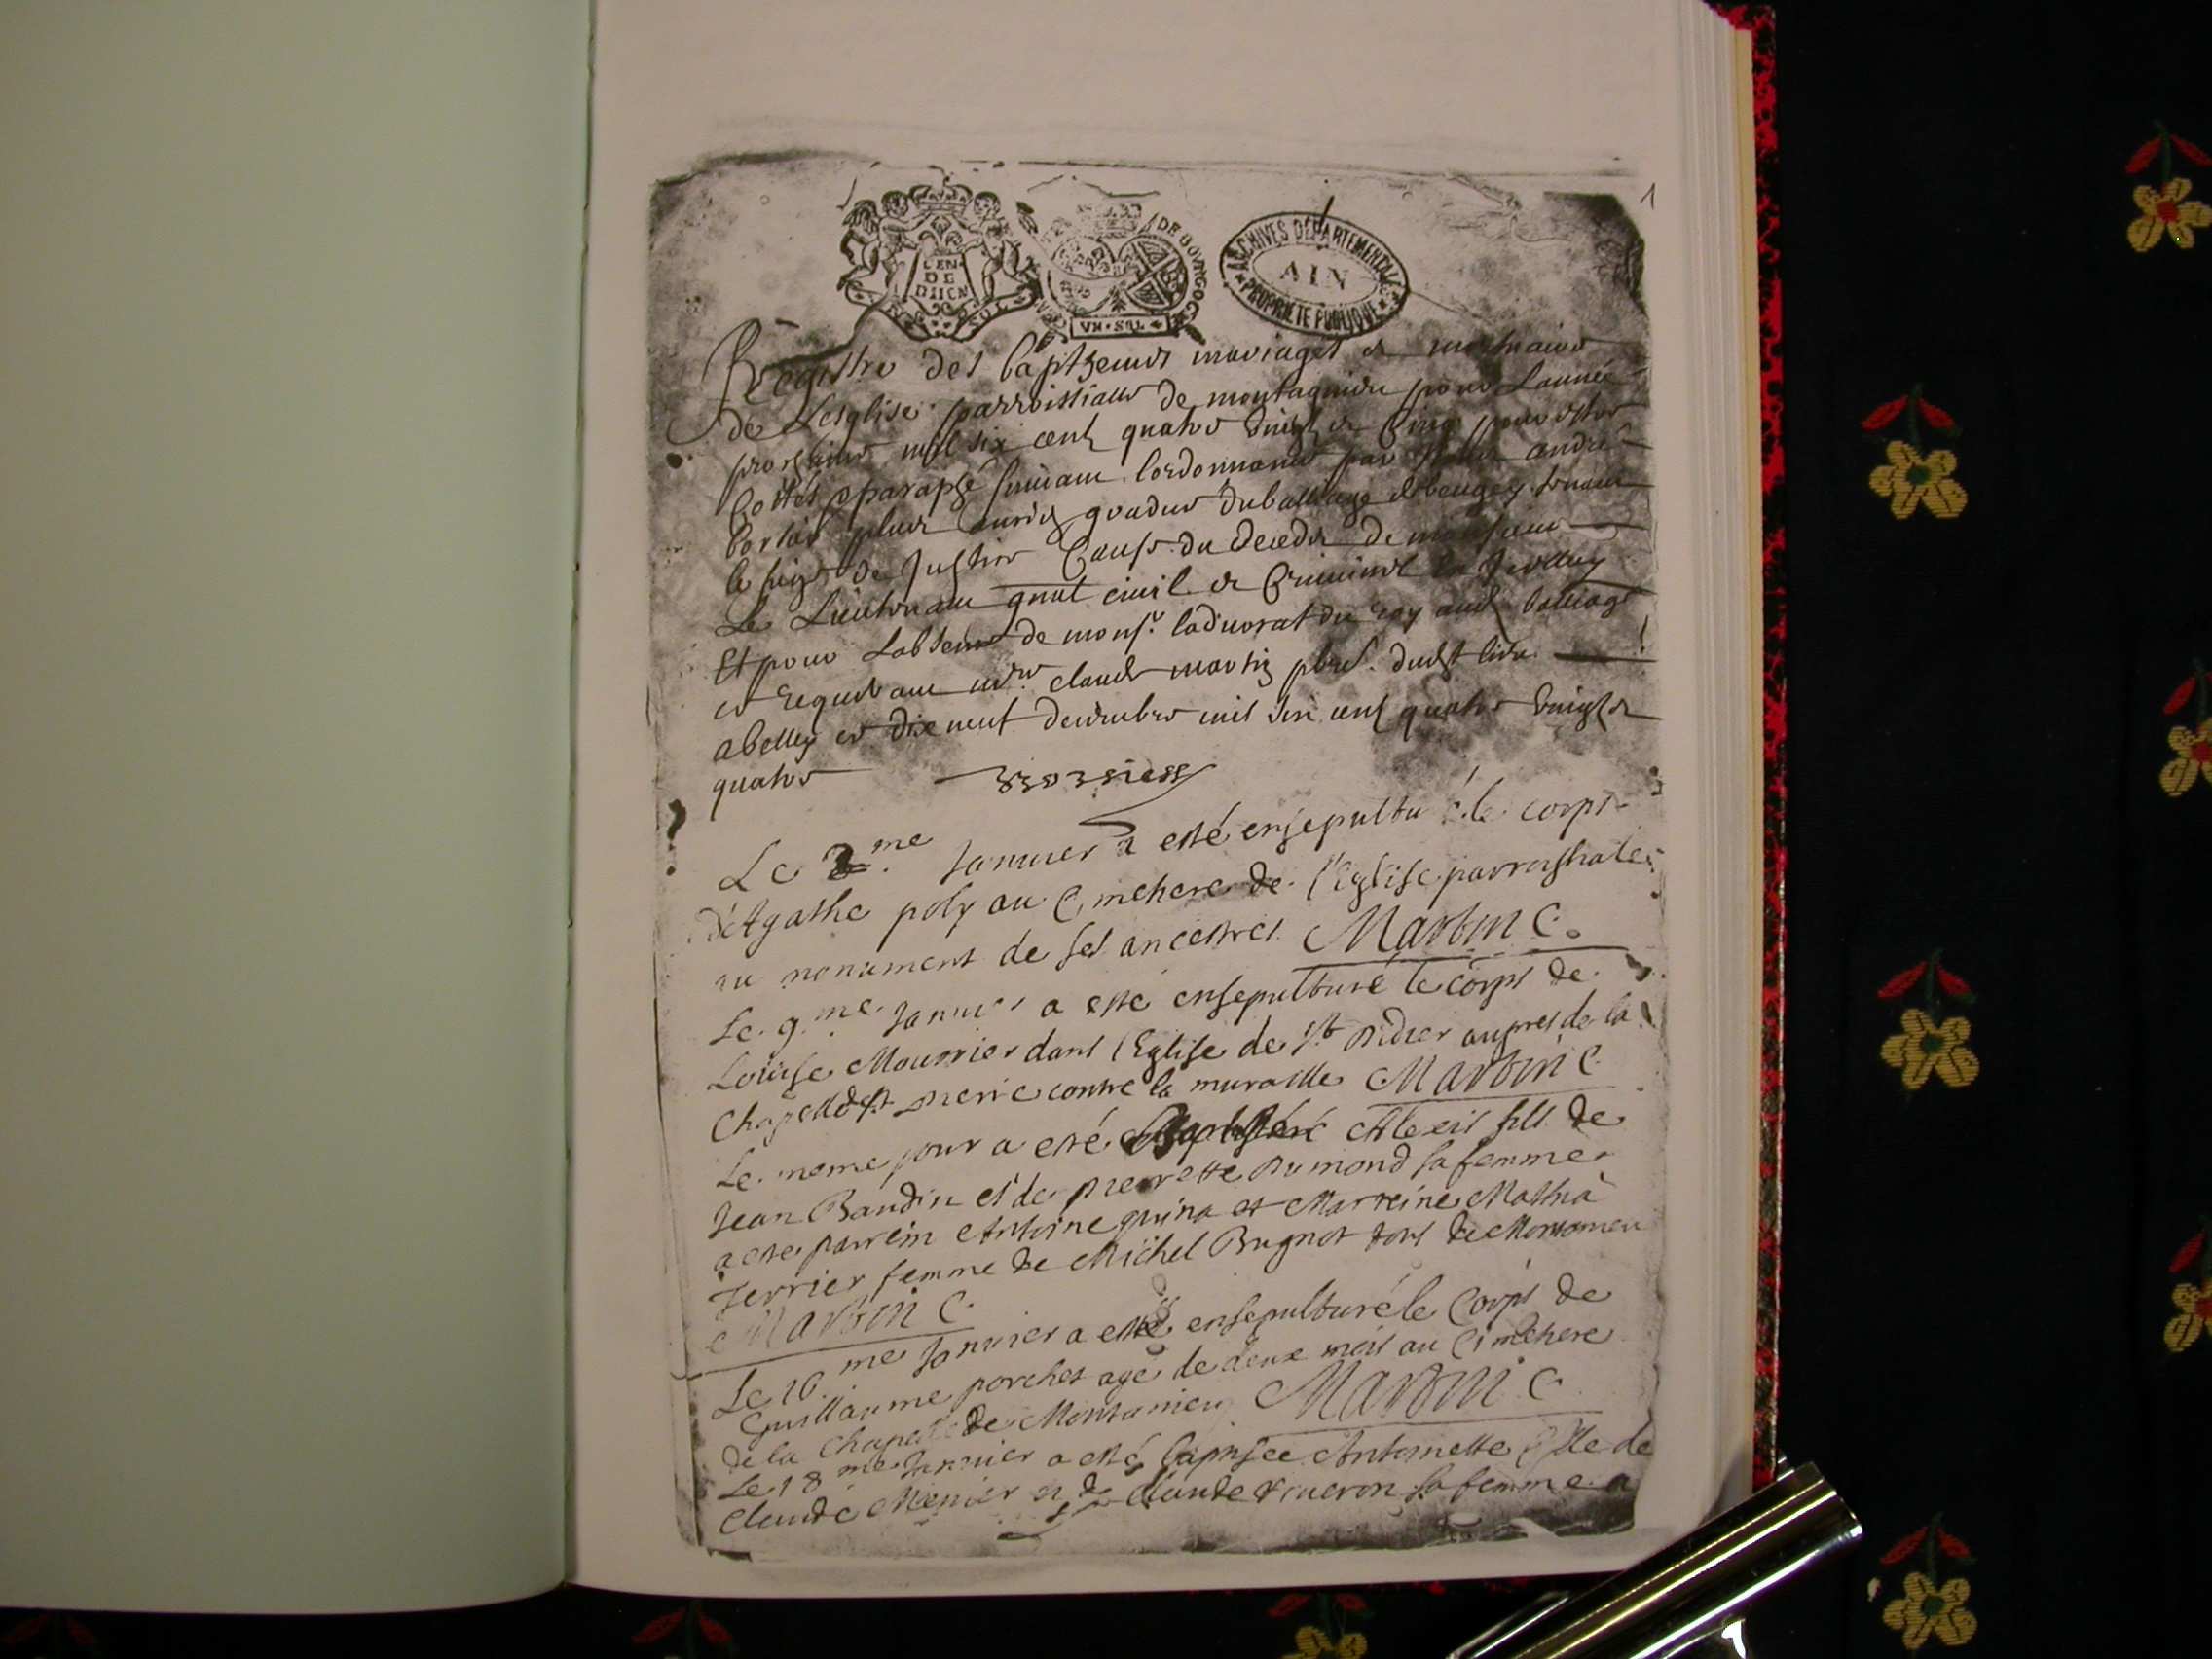 1
GEN
DE
DIION
VN SOL
DE BOVRGOGNE
VN · SOL
ARCHIVES DÉPARTEMENTALES
AIN
PROPRIÉTÉ PUBLIQUE
Registre des baptzemes mariages et mortuaires
de Lesglise parroissialle de montagnieu pour Lannée
prochaine mil six cent quatre vingt et cinq pour estre
Cottés et paraphé suivant lordonnance par andré
gradué du balliage de beugey tenant
le siege de Justice Cause du deceds de monsieur
Le Lieutenant gnal civil et Criminel
Et pour Labsence de monsr. ladvocat du roy audt balliage
ce requerant claude martin dudt lieu
abelley ce dix neuf decembre mil six cent quatre vingt et
quatre
Le 2me. Januier a esté ensepulturé le corps
d'Agathe poly au Cimetiere de l'Eglise parroissiale
au monument de ses ancestres. Martin C.
Le 9.me Januier a esté ensepulturé le corps de
Louise Mounier dans l'Eglise de St Didier aupres de la
Chapelle contre la muraille Martin C.
Le meme jour a esté Alexis fils de
Jean Baudin et de pierrette Dumond sa femme
a esté parrein Antoine guina et Marreine
Terrier femme de Michel Bugnot tous de Montanieu
Martin C.
Le 16.me Januier a esté ensepulturé le Corps de
Guillaume porchet agé de deux mois au Cimetiere
de la Chapelle de Montanieu Martin C.
Le 18me Januier a esté baptisée Antoinette fille de
Claude Menier et de Claude sa femme a